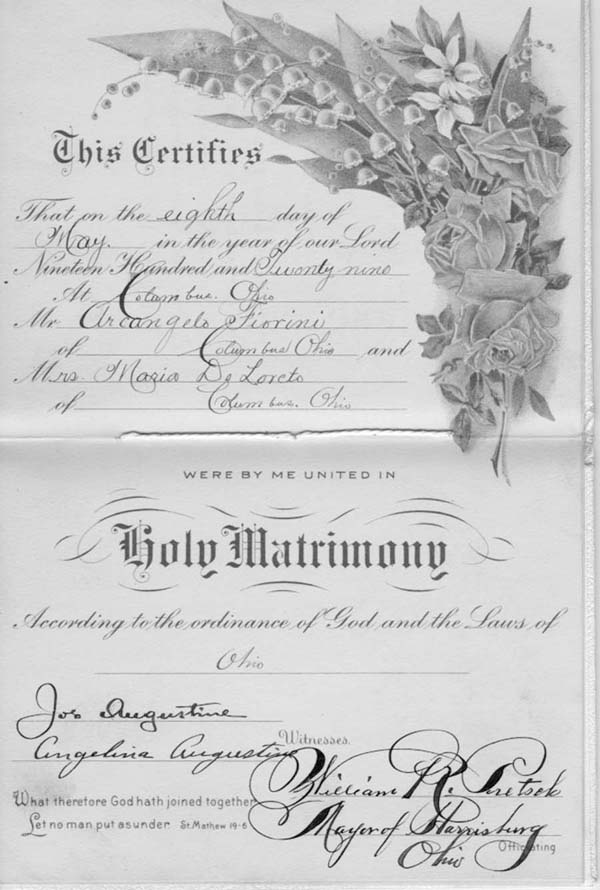 This Certifies
That on the eighth day of
May. in the year of our Lord
Nineteen Hundred and Twenty nine
At Columbus. Ohio
Mr Arcangelo Fiorini
of Columbus Ohio and
Mrs. Maria De Loreto
of Columbus. Ohio
WERE BY ME UNITED IN
Holy Matrimony
According to the ordinance of God and the Laws of
Ohio
Jos Augustine
Angelina Augustine
Witnesses.
William R.
What therefore God hath joined together
Let no man put asunder. St. Mathew 19-6
Mayor of Harrisburg
Ohio
Officiating